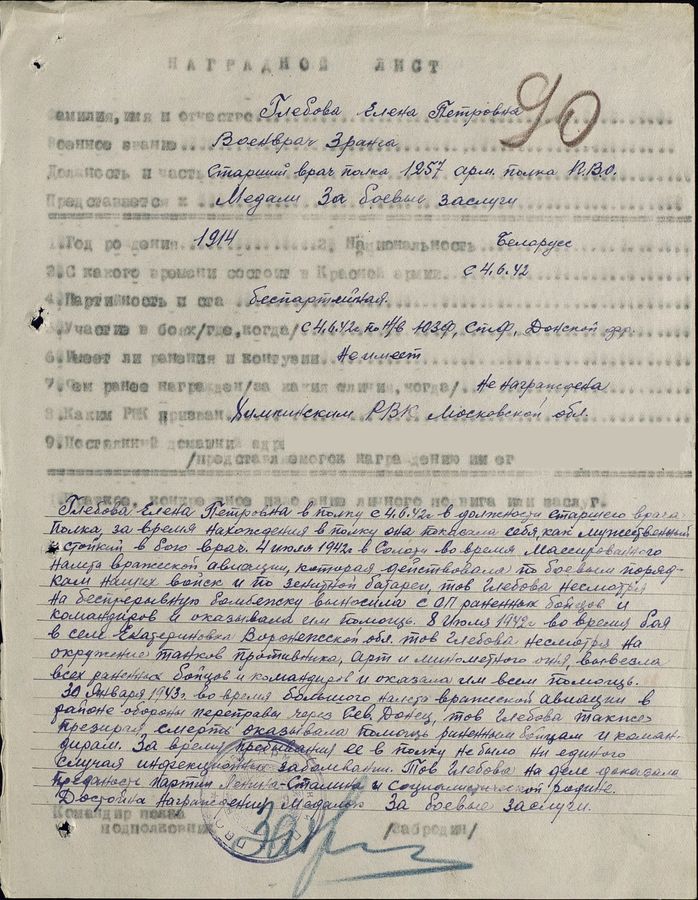 НАГРАДНОЙ ЛИСТ
90
Фамилия, имя и отчество Глебова Елена Петровна
Военное звание Военврач 3 ранга
Должность и часть Старший врач полка 1257 арм. полка ПВО.
Представляется к Медали За боевые заслуги
1. Год рождения 1914 2. Национальность Беларусс
3. С какого времени состоит в Красной армии с 4.6.42
4. Партийность и ста беспартейная
5. Участие в боях/где, когда/ с 4.6.42г. по Н/в ЮЗФ, Ст.Ф, Донской фр.
6. Имеет ли ранения и контузии Не имеет
7. Чем ранее награжден/за какия отличия, когда/ Не награждена
8. Каким РВК призван Химкинским РВК Московской обл.
9. Постоянный домашний адре
/представляемогок награждению им ег
1. Краткое, конкретное изложение личного подвига или заслуг.
Глебова Елена Петровна в полку с 4.6.42г в должности старшего врача
полка, за время нахождения в полку она показала себя, как мужественный
и стойкий в бою врач. 4 июля 1942г в Солоти во время Массированного
налета вражеской авиации, которая действовала по боевым поряд-
кам наших войск и по зенитной батареи, тов Глебова несмотря
на беспрерывную бомбежку выносила с ОП раненных бойцов и
командиров и оказывала им помощь. 8 Июля 1942г во время боя
в селе Екатериновка Воронежской обл. тов Глебова несмотря на
окружение танков противника, Арт и минометного огня, вывезла
всех раненных бойцов и командиров и оказала им всем помощь.
30 Января 1943г во время большого налета вражеской авиации в
районе обороны переправы через Сев. Донец, тов Глебова также
презирая смерть оказывала помощь раненным бойцам и коман-
дирам. За время пребывания ее в полку не было ни единого
случая инфекционных заболеваний. Тов Глебова на деле доказала
преданость партии Ленина-Сталина и социалистической родине.
Достойна Награждения Медалью За боевые заслуги.
Командир полка
подполковник /Забродин/